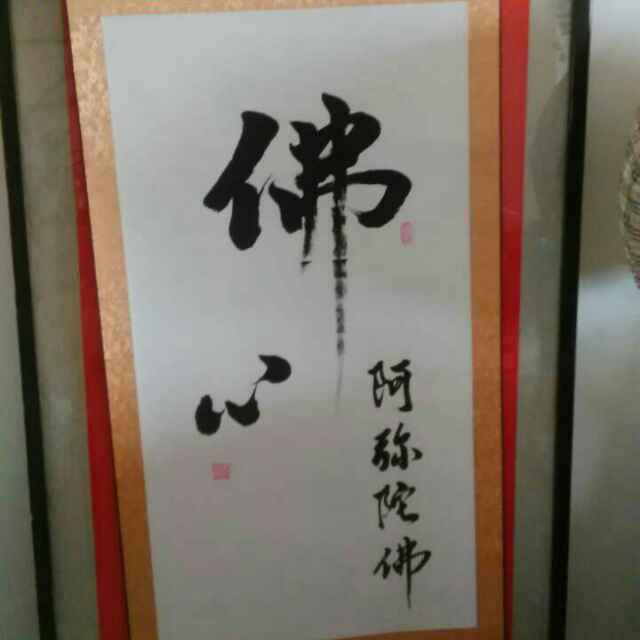 佛心
阿弥陀佛